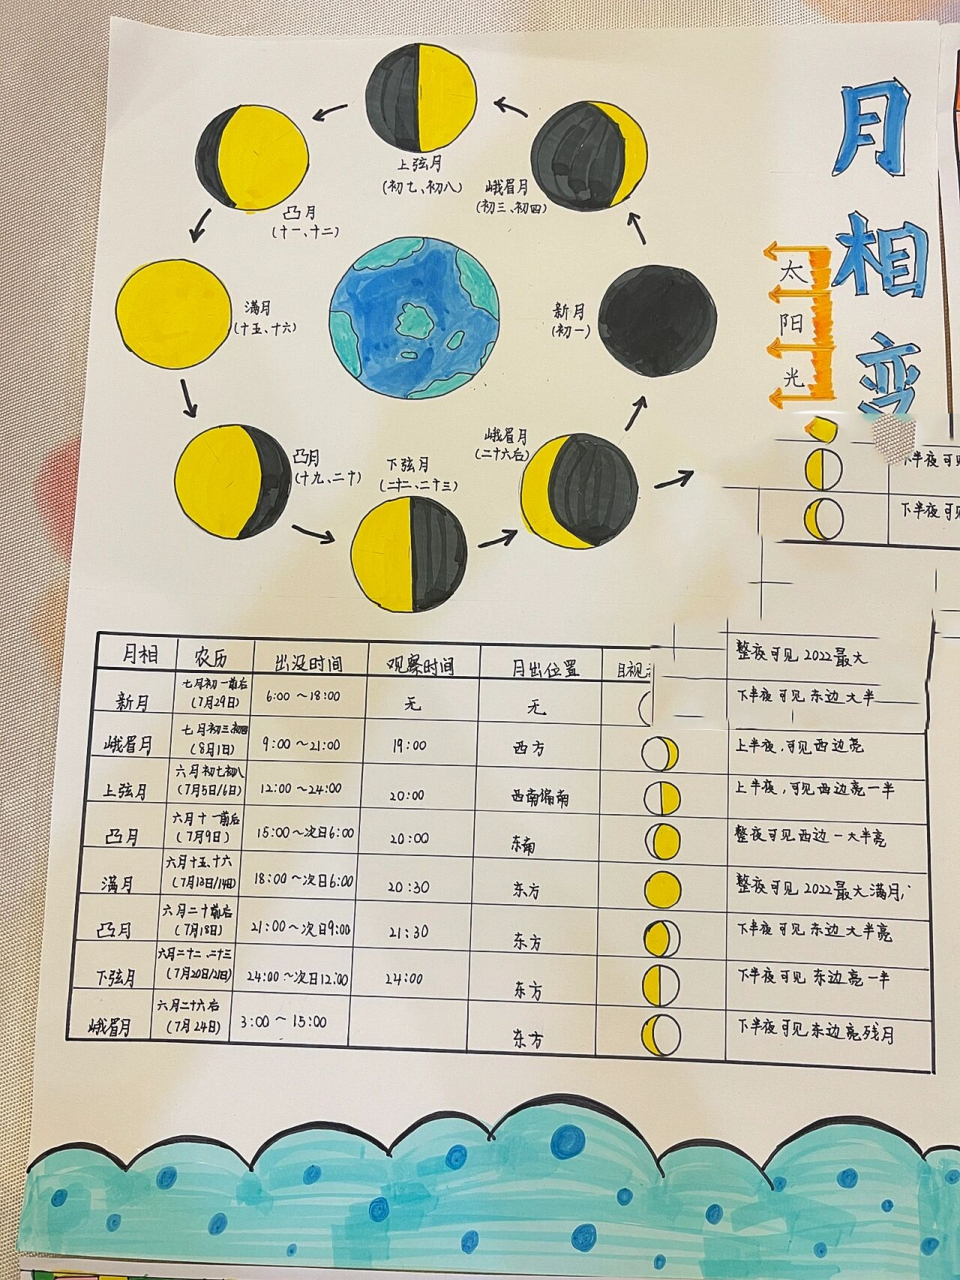 月
相
变
太
阳
光
上弦月
(初七、初八)
峨眉月
(初三、初四)
凸月
(十一、十二)
满月
(十五、十六)
新月
(初一)
凸月
(十九、二十)
下弦月
(二十二、二十三)
峨眉月
(二十六后)
下半夜可见
下半夜可见
月相 农历 出没时间 观察时间 月出位置 目视
整夜可见2022最大
新月 七月初一前后 (7月29日) 6:00~18:00 无 无 下半夜可见东边大半
峨眉月 七月初三初四 (8月1日) 9:00~21:00 19:00 西方 上半夜,可见西边亮
上弦月 六月初七初八 (7月5日/6日) 12:00~24:00 20:00 西南偏南 上半夜,可见西边亮一半
凸月 六月十一前后 (7月9日) 15:00~次日6:00 20:00 东南 整夜可见西边一大半亮
满月 六月十五、十六 (7月13日/14日) 18:00~次日6:00 20:30 东方 整夜可见2022最大满月,
凸月 六月二十前后 (7月18日) 21:00~次日9:00 21:30 东方 下半夜可见东边大半亮
下弦月 六月二十二、二十三 (7月20日/21日) 24:00~次日12:00 24:00 东方 下半夜可见东边亮一半
峨眉月 六月二十六后 (7月24日) 3:00~15:00 东方 下半夜可见东边亮残月